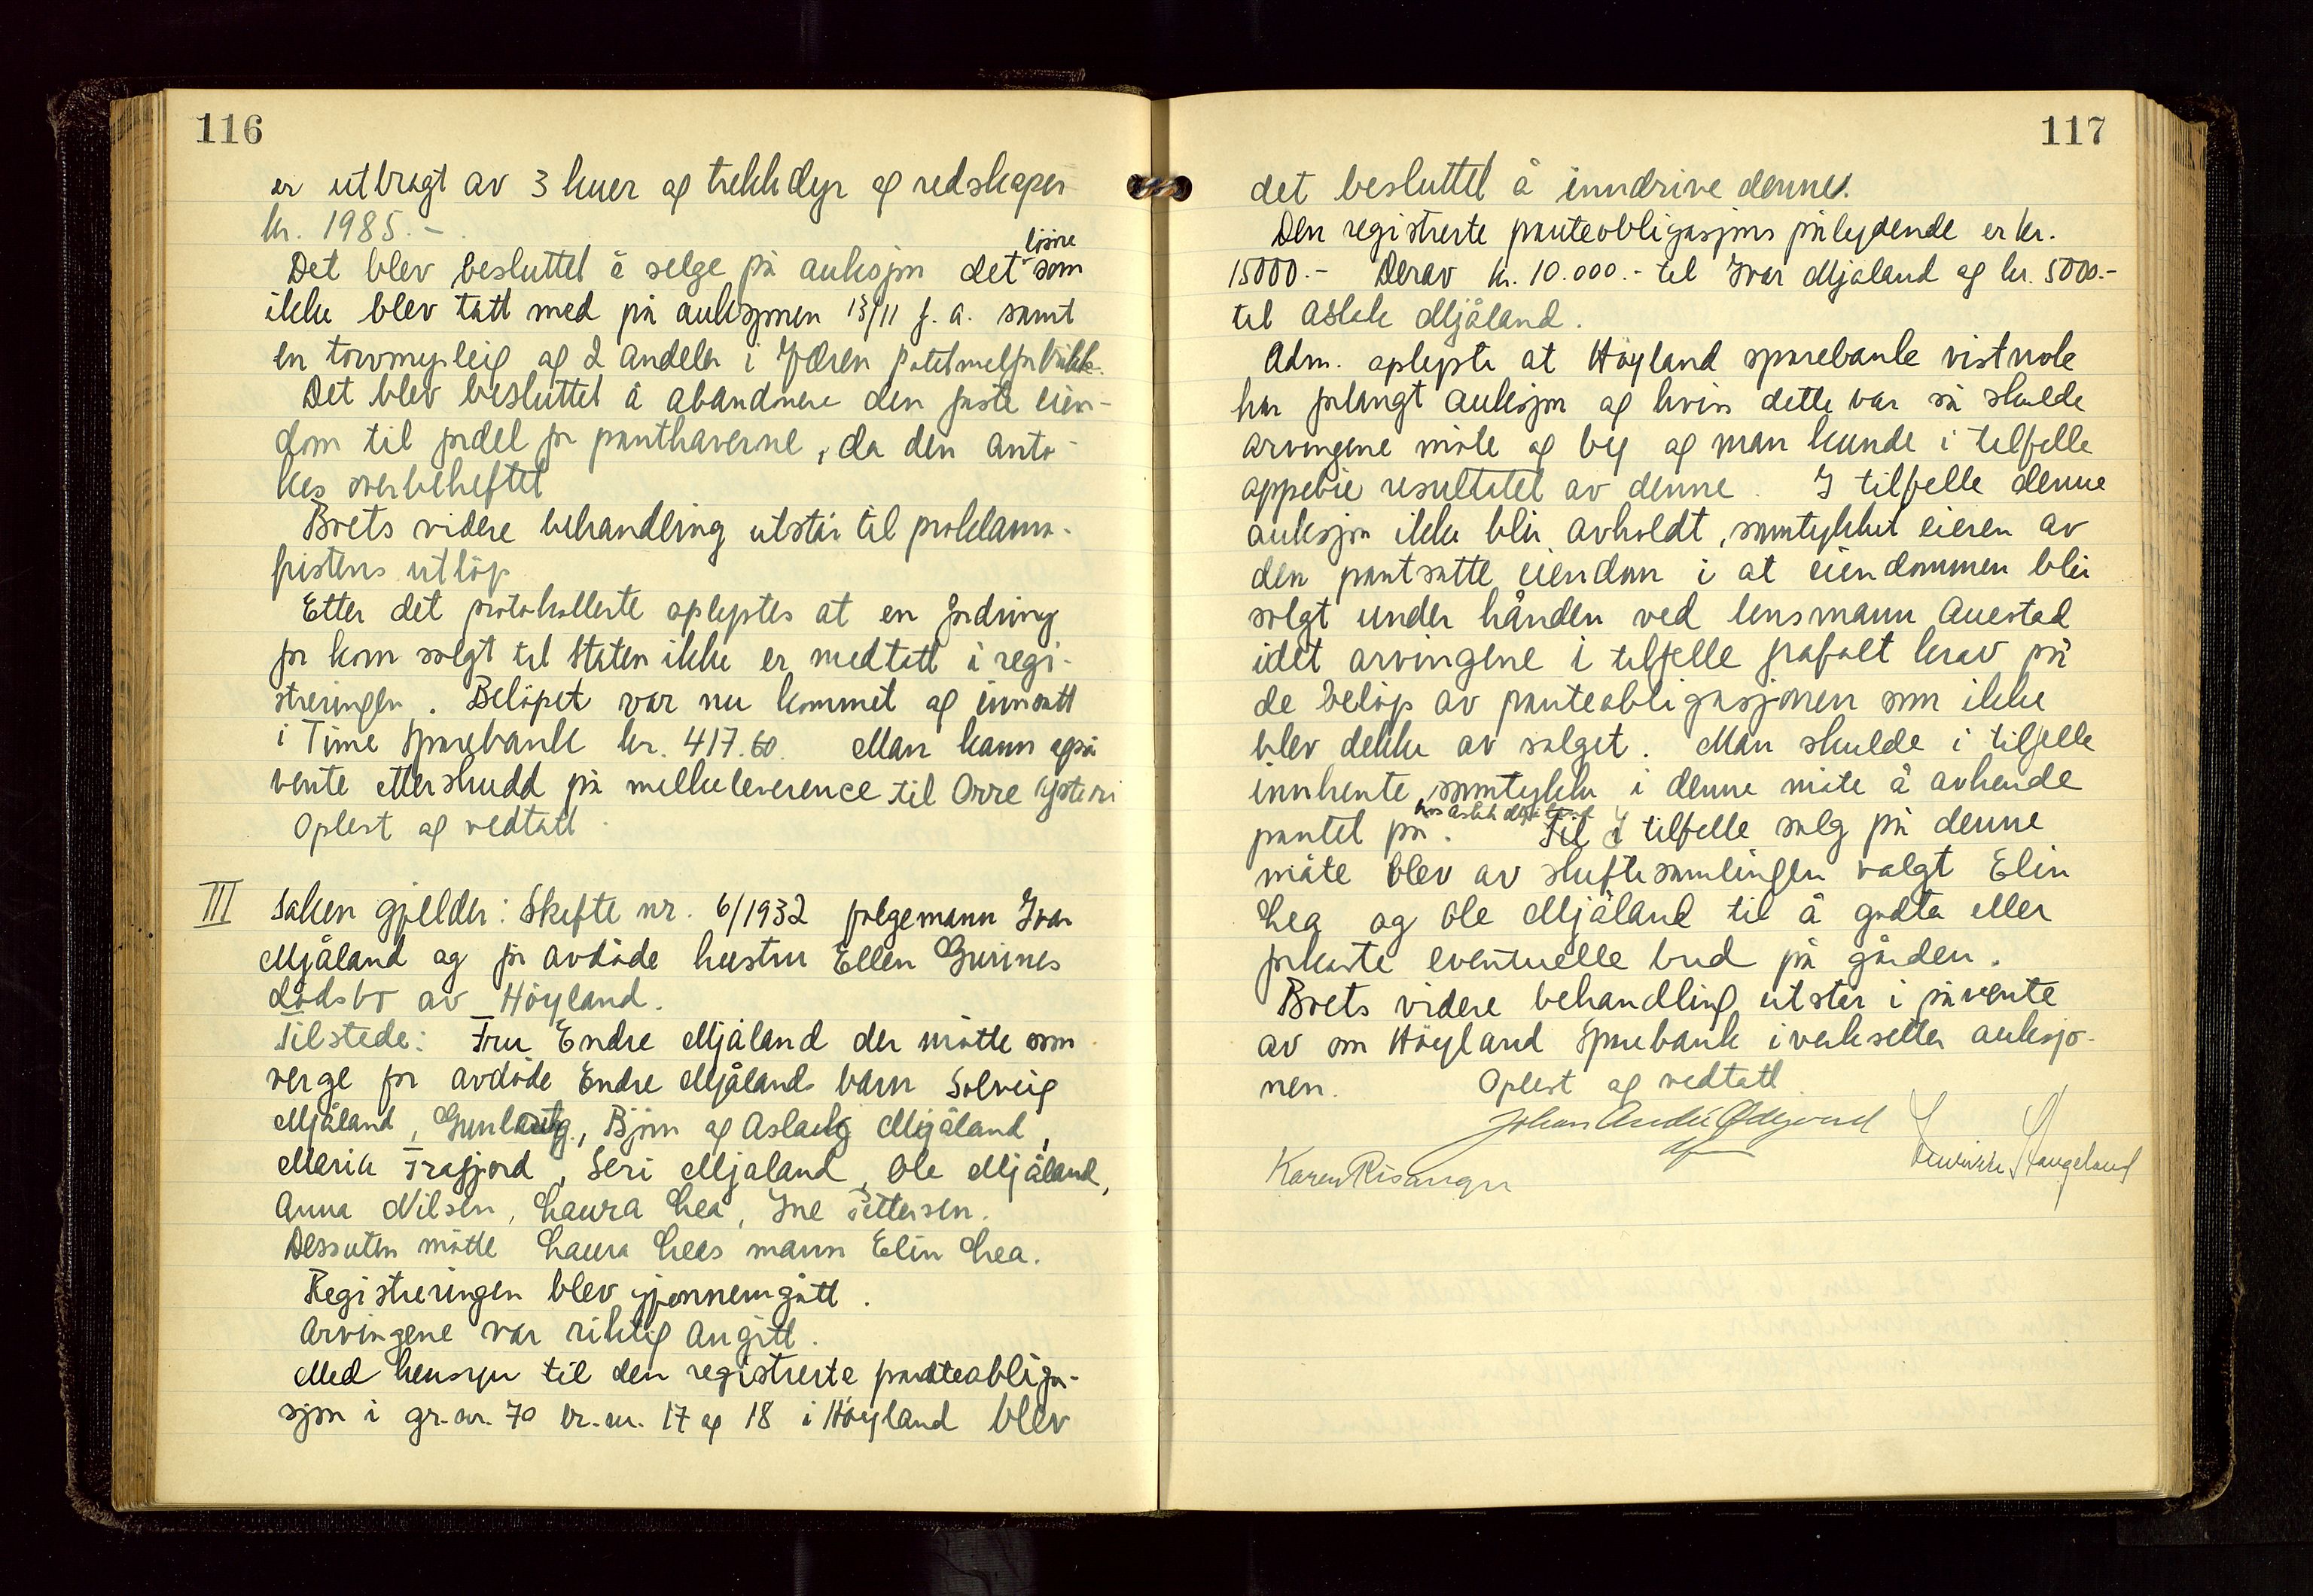 116
er utbragt av 3 kuer og trekkdyr og redskaper
kr. 1985.-
Det blev besluttet å selge på auksjon det løsøre som
ikke blev tatt med på auksjonen 13/11 f. a. samt
en torvmyrleig og 2 andeler i Jæren potetmelfabrikk.
Det blev besluttet å abandonere den faste eien-
dom til fordel for panthaverne, da den anto-
kes overbeheftet
Boets videre behandling utstår til proklama-
fristens utløp
Etter det protokollerte oplystes at en fordring
for korn solgt til Staten ikke er medtatt i regi-
streringen. Beløpet var nu kommet og innsatt
i Time Sparebank kr. 417.60 Man kann også
vente etterskudd på melkeleverence til Orre Ysteri
Oplest og vedtatt.
III Saken gjelder: Skifte nr. 6/1932 følgemann Ivar
Mjåland og for avdøde hustru Ellen Gurines
dødsbo av Höyland.
Tilstede: Fru Endre Mjåland der møtte som
verge for avdøde Endre Mjålands barn Solveig
Mjåland, Gunlaug, Bjørn og Aslaug Mjåland,
Marie Frafjord, Seri Mjåland, Ole Mjåland,
Anna Nilsen, Laura Lea, Ine Pettersen.
Dessuten møtte Laura Leas mann Elin Lea.
Registreringen blev gjennemgått.
Arvingene var riktig angitt.
Med hensyn til den registrerte panteobliga-
sjon i gr. nr. 70 br. nr. 17 og 18 i Höyland blev
117
det besluttet å inndrive denne.
Den registrerte panteobligasjons pålydende er kr.
15000.- Derav kr. 10.000.- til Ivar Mjåland og kr. 5000.-
til Aslak Mjåland.
Adm. oplyste at Höyland sparebank vistnok
har forlangt auksjon og hvis dette var så skulde
arvingene møte og by og man kunde i tilfelle
appebie resultatet av denne. I tilfelle denne
auksjon ikke blir avholdt, samtykket eieren av
den pantsatte eiendom i at eiendommen blir
solgt under hånden ved lensmann Auestad
idet arvingene i tilfelle frafalt krav på
de beløp av panteobligasjonen som ikke
blev dekke av salget. Man skulde i tilfelle
innhente samtykke i denne måte å avhende
pantet på hos Aslak Mjåland. Til I tilfelle salg på denne
måte blev av skiftesamlingen valgt Elin
Lea og Ole Mjåland til å godta eller
forkaste eventuelle bud på gården.
Boets videre behandling utstår i påvente
av om Höyland Sparebank iverksetter auksjo-
nen. Oplest og vedtatt
Johan André Ødegaard
df
Karen Risanger Haugeland